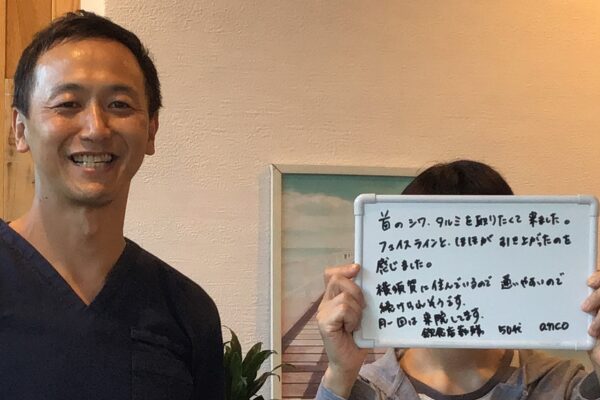 首のシワ、タルミを取りたくて来ました。
フェイスラインと、ほほが引き上がたのを
感じました。
横須賀に住んでいるので 通いやすいので
続けられそうです。
月一回は来院してます。
50代 anco